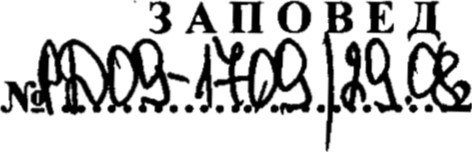 ЗАПОВЕД
№РД09-1709/29.08.